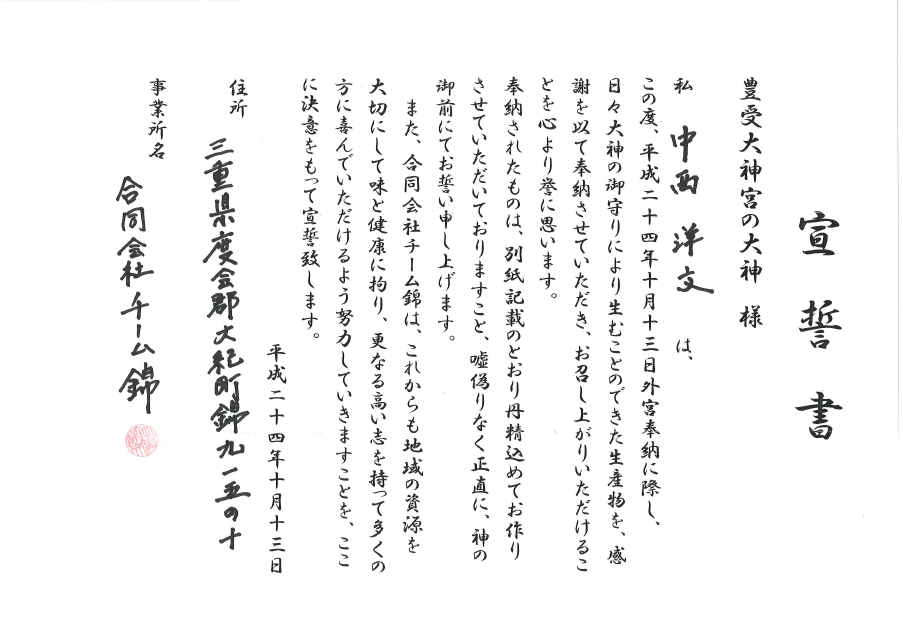 宣誓書
豊受大神宮の大神 様
私 中西 洋文 は、
この度、平成二十四年十月十三日外宮奉納に際し、
日々大神の御守りにより生むことのできた生産物を、感
謝を以て奉納させていただき、お召し上がりいただけるこ
とを心より誉に思います。
奉納されたものは、別紙記載のとおり丹精込めてお作り
させていただいておりますこと、嘘偽りなく正直に、神の
御前にてお誓い申し上げます。
また、合同会社チーム錦は、これからも地域の資源を
大切にして味と健康に拘り、更なる高い志を持って多くの
方に喜んでいただけるよう努力していきますことを、ここ
に決意をもって宣誓致します。
平成二十四年十月十三日
住所 三重県度会郡大紀町錦九一五の十
事業所名 合同会社チーム錦